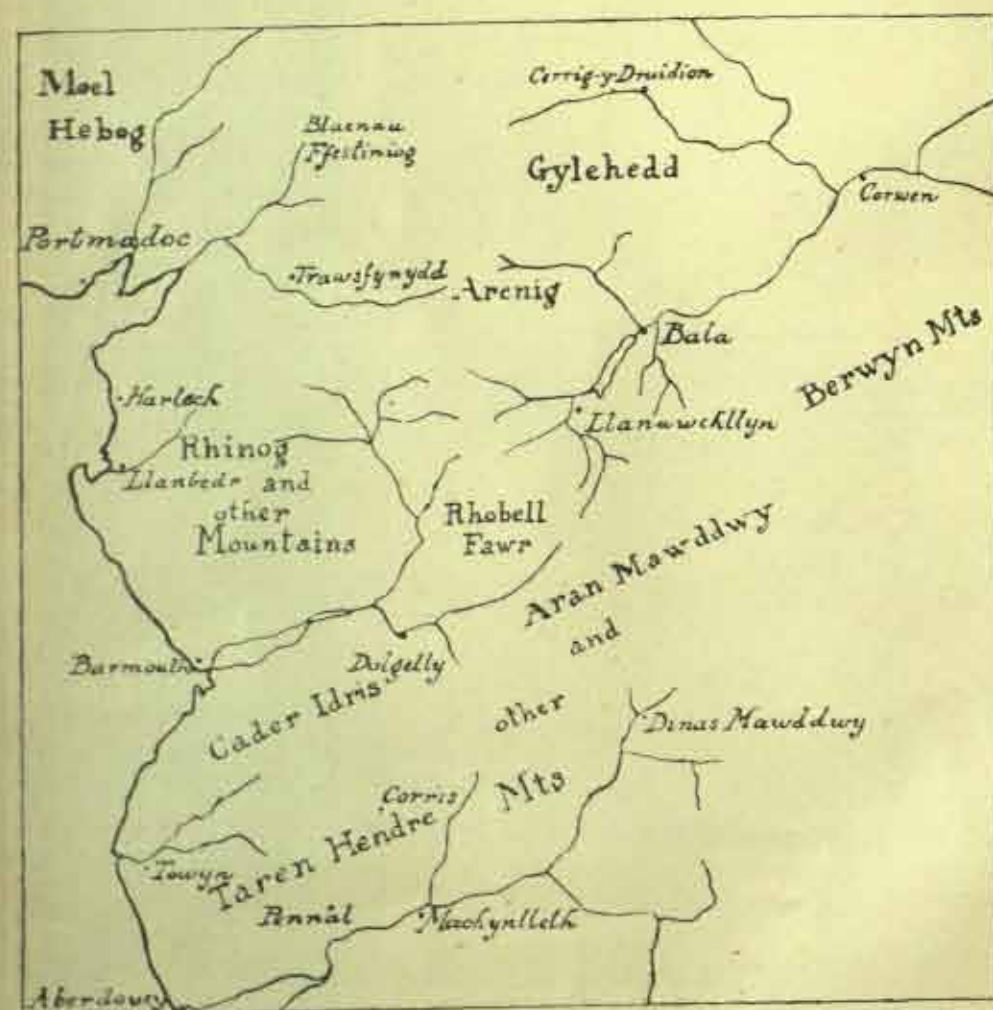 Moel
Hebog
Cerrig-y-Druidion
Blaenau
Ffestiniog
Gylchedd
Corwen
Portmadoc
Trawsfynydd
Arenig
Bala
Berwyn Mts
Harlech
Llanuwchllyn
Rhinog
Llanbedr and
other
Mountains
Rhobell
Fawr
Aran Mawddwy
and
other
Mts
Barmouth
Dolgelly
Cader Idris
Dinas Mawddwy
Corris
Taren Hendre
Towyn
Pennal
Machynlleth
Aberdovey